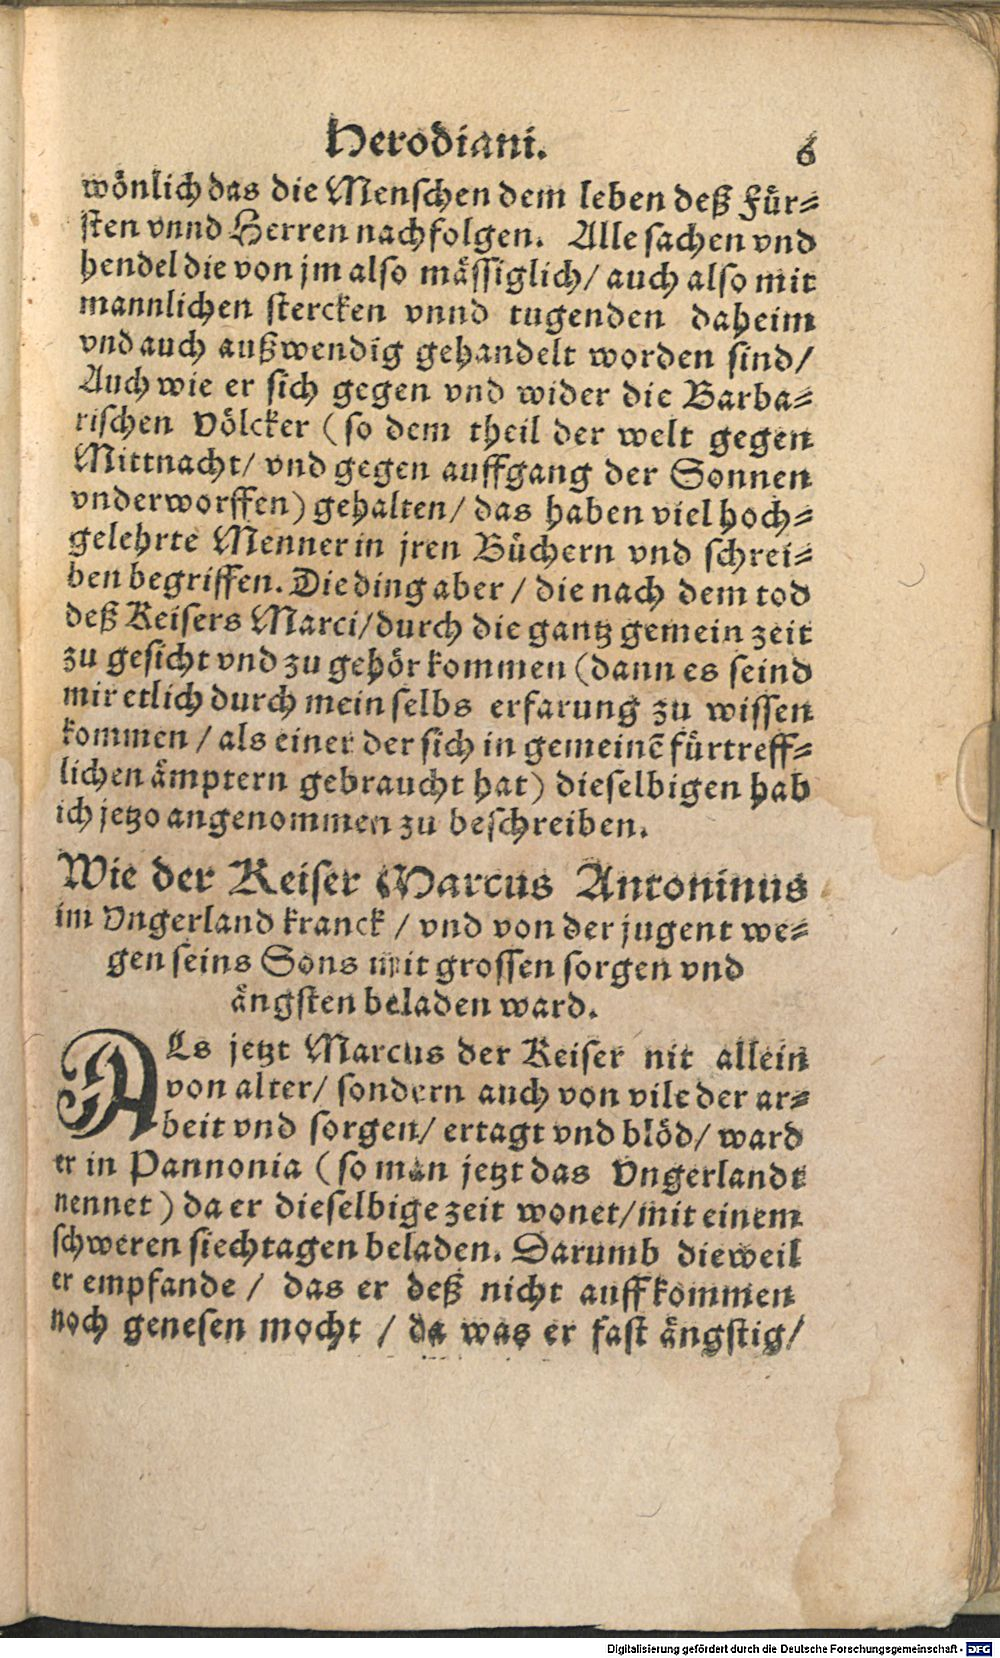 Herodiani. 6
wönlich das die Menschen dem leben deß Für⸗
sten vnnd Herren nachfolgen. Alle sachen vnd
hendel die von jm also mässiglich/ auch also mit
mannlichen stercken vnnd tugenden daheim
vnd auch außwendig gehandelt worden sind/
Auch wie er sich gegen vnd wider die Barba⸗
rischen Völcker (so dem theil der welt gegen
Mittnacht/ vnd gegen auffgang der Sonnen
vnderworffen) gehalten/ das haben viel hoch⸗
gelehrte Menner in jren Büchern vnd schrei⸗
ben begriffen. Die ding aber / die nach dem tod
deß Keisers Marci/ durch die gantz gemein zeit
zu gesicht vnd zu gehör kommen (dann es seind
mir etlich durch mein selbs erfarung zu wissen
kommen / als einer der sich in gemeinē fürtreff⸗
lichen ämptern gebraucht hat) dieselbigen hab
ich jetzo angenommen zu beschreiben.
Wie der Keiser Marcus Antoninus
im Vngerland kranck / vnd von der jugent we⸗
gen seins Sons mit grossen sorgen vnd
ängsten beladen ward.
ALs jetzt Marcus der Keiser nit allein
von alter/ sondern auch von vile der ar⸗
beit vnd sorgen/ ertagt vnd blöd/ ward
er in Pannonia (so man jetzt das Vngerlandt
nennet) da er dieselbige zeit wonet/ mit einem
schweren siechtagen beladen. Darumb dieweil
er empfande / das er deß nicht auffkommen
noch genesen mocht / da was er fast ängstig/
Digitalisierung gefördert durch die Deutsche Forschungsgemeinschaft - DFG